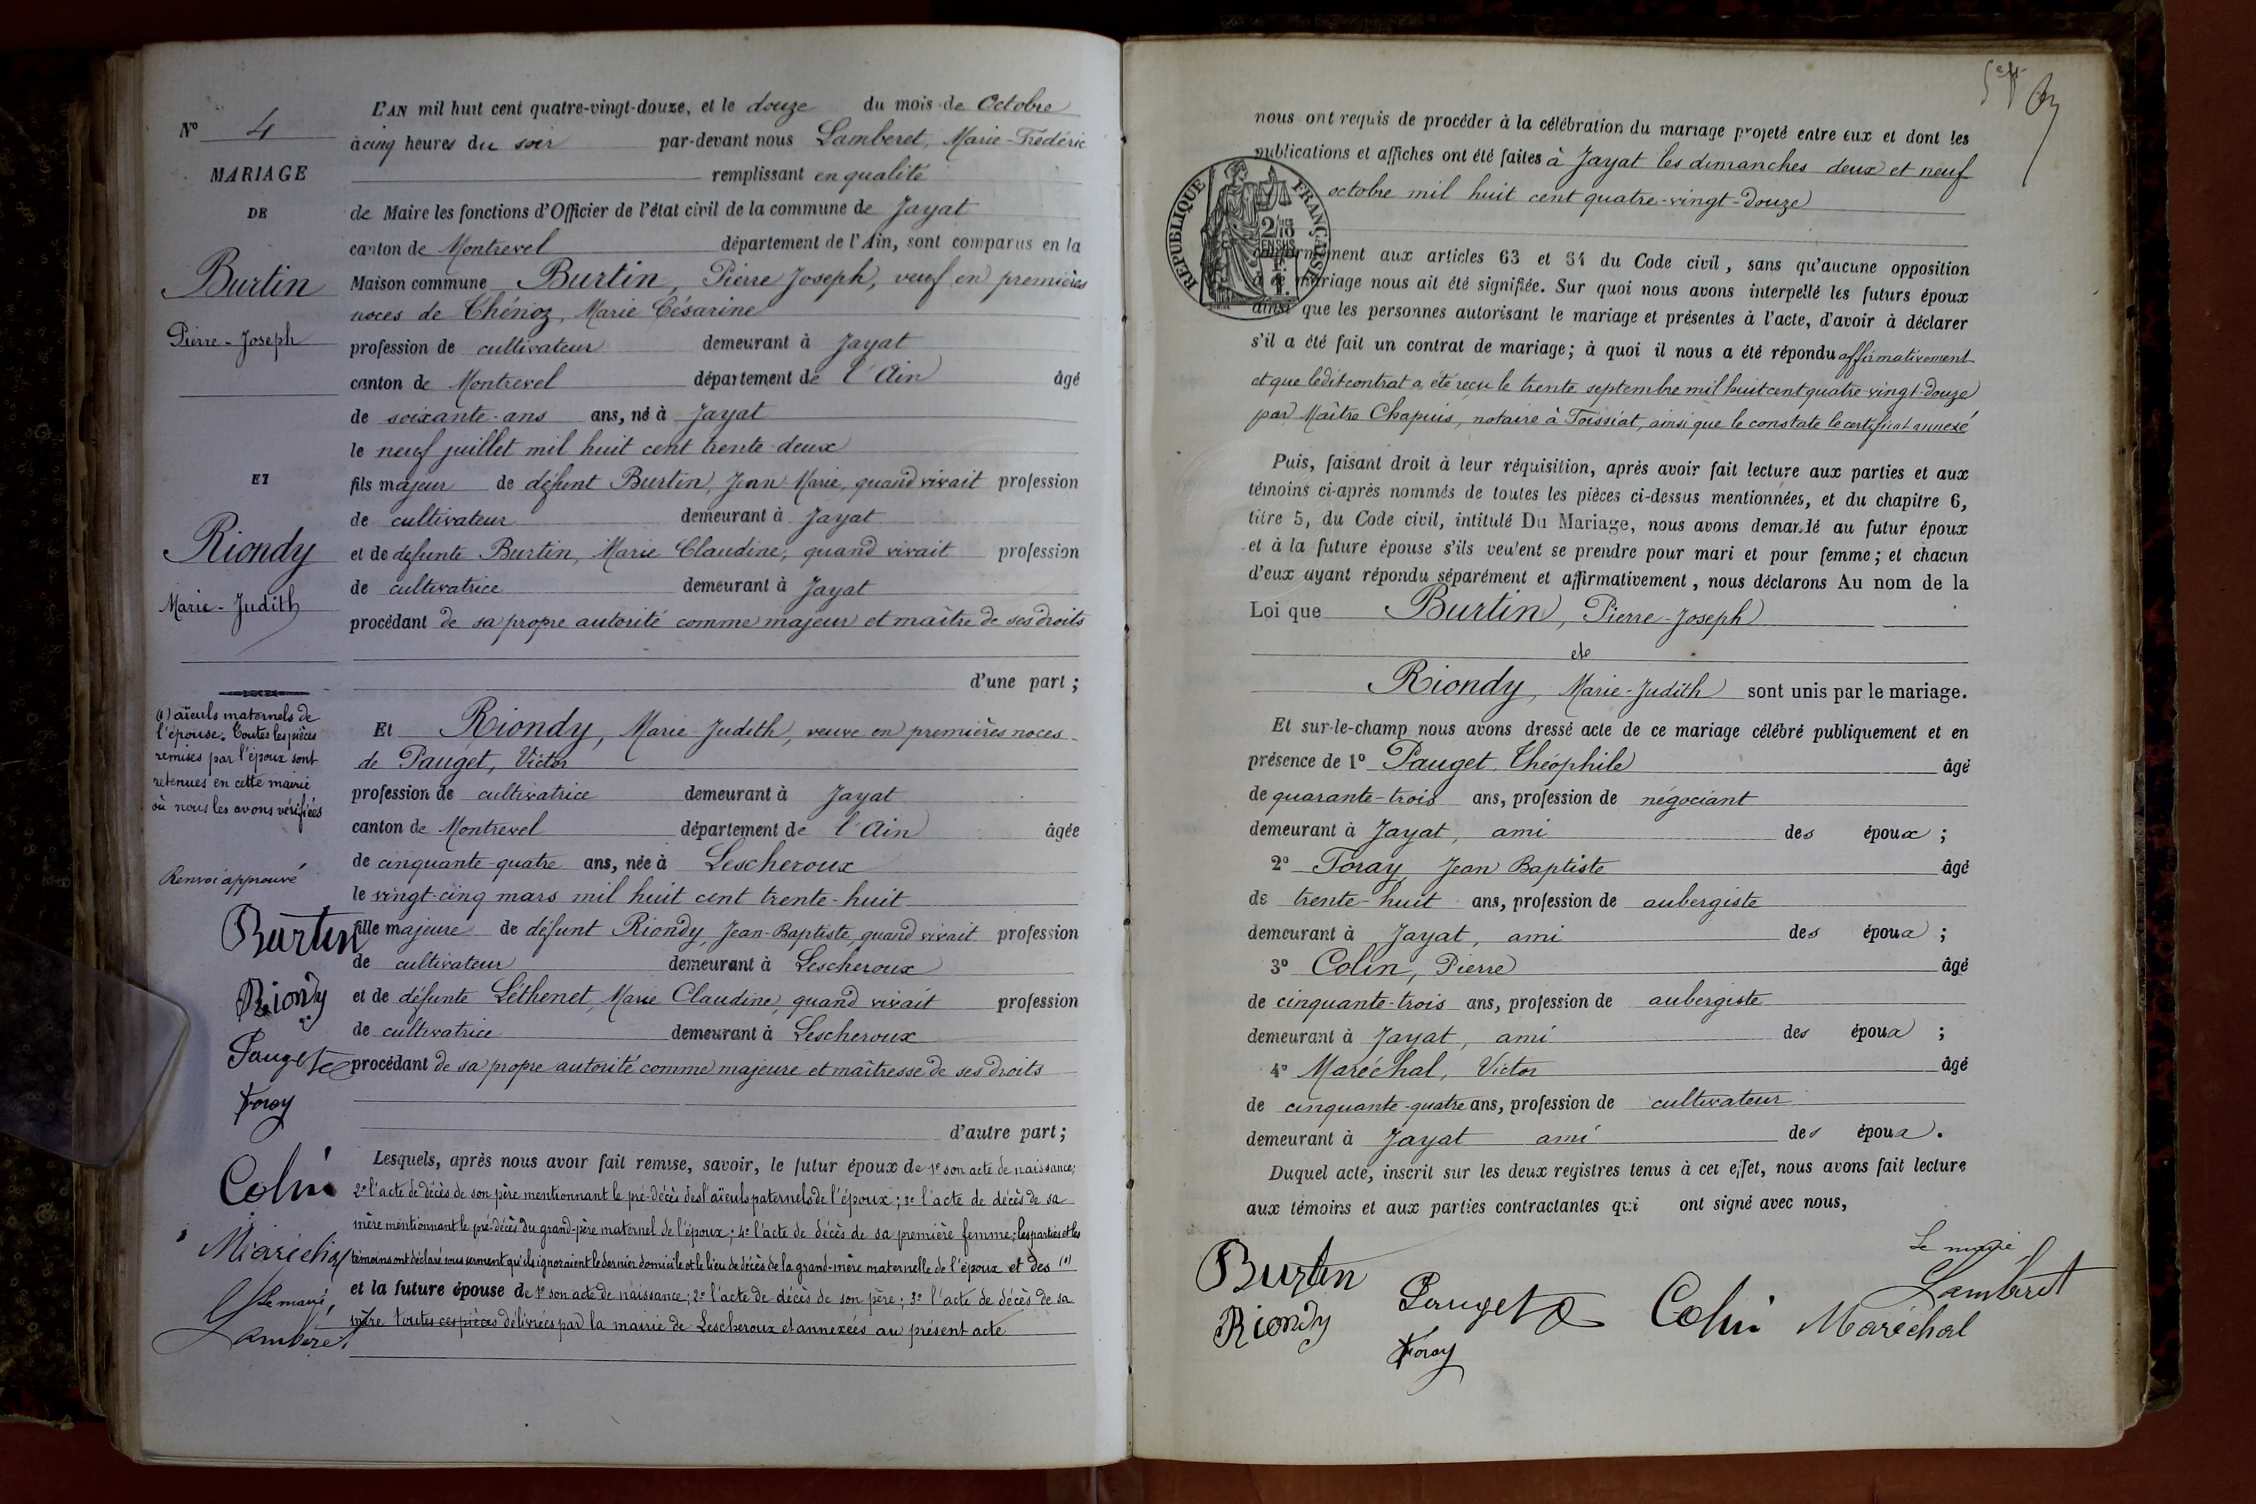 N° 4
MARIAGE
DE
Burtin
Pierre-Joseph
ET
Riondy
Marie-Judith
(1) aïeuls maternels de
l'épouse. Toutes les pièces
remises par l'époux sont
retenues en cette mairie
où nous les avons vérifiées
Renvoi approuvé
Burtin
Riondy
Pauget
Foray
Colin
Maréchal
Le maire,
Lamberet
L'AN mil huit cent quatre-vingt-douze, et le douze du mois de Octobre
à cinq heures du soir par-devant nous Lamberet, Marie-Frédéric
remplissant en qualité
de Maire les fonctions d'Officier de l'état civil de la commune de Jayat
canton de Montrevel département de l'Ain, sont comparus en la
Maison commune Burtin, Pierre Joseph, veuf en premières
noces de Thénoz, Marie Césarine
profession de cultivateur demeurant à Jayat
canton de Montrevel département de l'Ain âgé
de soixante-ans ans, né à Jayat
le neuf juillet mil huit cent trente deux
fils majeur de défunt Burtin, Jean-Marie, quand vivait profession
de cultivateur demeurant à Jayat
et de défunte Burtin, Marie Claudine, quand vivait profession
de cultivatrice demeurant à Jayat
procédant de sa propre autorité comme majeur et maître de ses droits
d'une part ;
Et Riondy, Marie Judith, veuve en premières noces
de Pauget, Victor
profession de cultivatrice demeurant à Jayat
canton de Montrevel département de l'Ain âgée
de cinquante-quatre ans, née à Lescheroux
le vingt-cinq mars mil huit cent trente-huit
fille majeure de défunt Riondy, Jean-Baptiste, quand vivait profession
de cultivateur demeurant à Lescheroux
et de défunte Léthenet, Marie Claudine, quand vivait profession
de cultivatrice demeurant à Lescheroux
procédant de sa propre autorité comme majeure et maîtresse de ses droits
d'autre part ;
Lesquels, après nous avoir fait remise, savoir, le futur époux de 1° son acte de naissance ;
2° l'acte de décès de son père mentionnant le pré-décès des aïeuls paternels de l'époux ; 3° l'acte de décès de sa
mère mentionnant le pré-décès du grand-père maternel de l'époux ; 4° l'acte de décès de sa première femme ; les parties et les
témoins ont déclaré sous serment qu'ils ignoraient le dernier domicile et le lieu de décès de la grand-mère maternelle de l'époux et des (1)
et la future épouse de 1° son acte de naissance ; 2° l'acte de décès de son père ; 3° l'acte de décès de sa
mère toutes ces pièces délivrées par la mairie de Lescheroux et annexées au présent acte
nous ont requis de procéder à la célébration du mariage projeté entre eux et dont les
publications et affiches ont été faites à Jayat les dimanches deux et neuf
octobre mil huit cent quatre-vingt-douze
RÉPUBLIQUE FRANÇAISE
conformément aux articles 63 et 64 du Code civil, sans qu'aucune opposition
à ce mariage nous ait été signifiée. Sur quoi nous avons interpellé les futurs époux
ainsi que les personnes autorisant le mariage et présentes à l'acte, d'avoir à déclarer
s'il a été fait un contrat de mariage ; à quoi il nous a été répondu affirmativement
et que ledit contrat a été reçu le trente septembre mil huit cent quatre-vingt-douze
par Maître Chapuis, notaire à Foissiat, ainsi que le constate le certificat annexé
Puis, faisant droit à leur réquisition, après avoir fait lecture aux parties et aux
témoins ci-après nommés de toutes les pièces ci-dessus mentionnées, et du chapitre 6,
titre 5, du Code civil, intitulé Du Mariage, nous avons demandé au futur époux
et à la future épouse s'ils veulent se prendre pour mari et pour femme ; et chacun
d'eux ayant répondu séparément et affirmativement, nous déclarons Au nom de la
Loi que Burtin, Pierre-Joseph
et
Riondy, Marie-Judith sont unis par le mariage.
Et sur-le-champ nous avons dressé acte de ce mariage célébré publiquement et en
présence de 1° Pauget, Théophile âgé
de quarante-trois ans, profession de négociant
demeurant à Jayat, ami des époux ;
2° Foray, Jean Baptiste âgé
de trente-huit ans, profession de aubergiste
demeurant à Jayat, ami des époux ;
3° Colin, Pierre âgé
de cinquante-trois ans, profession de aubergiste
demeurant à Jayat, ami des époux ;
4° Maréchal, Victor âgé
de cinquante-quatre ans, profession de cultivateur
demeurant à Jayat ami des époux.
Duquel acte, inscrit sur les deux registres tenus à cet effet, nous avons fait lecture
aux témoins et aux parties contractantes qui ont signé avec nous,
Le maire
Lamberet
Burtin
Pauget
Colin
Maréchal
Riondy
Foray